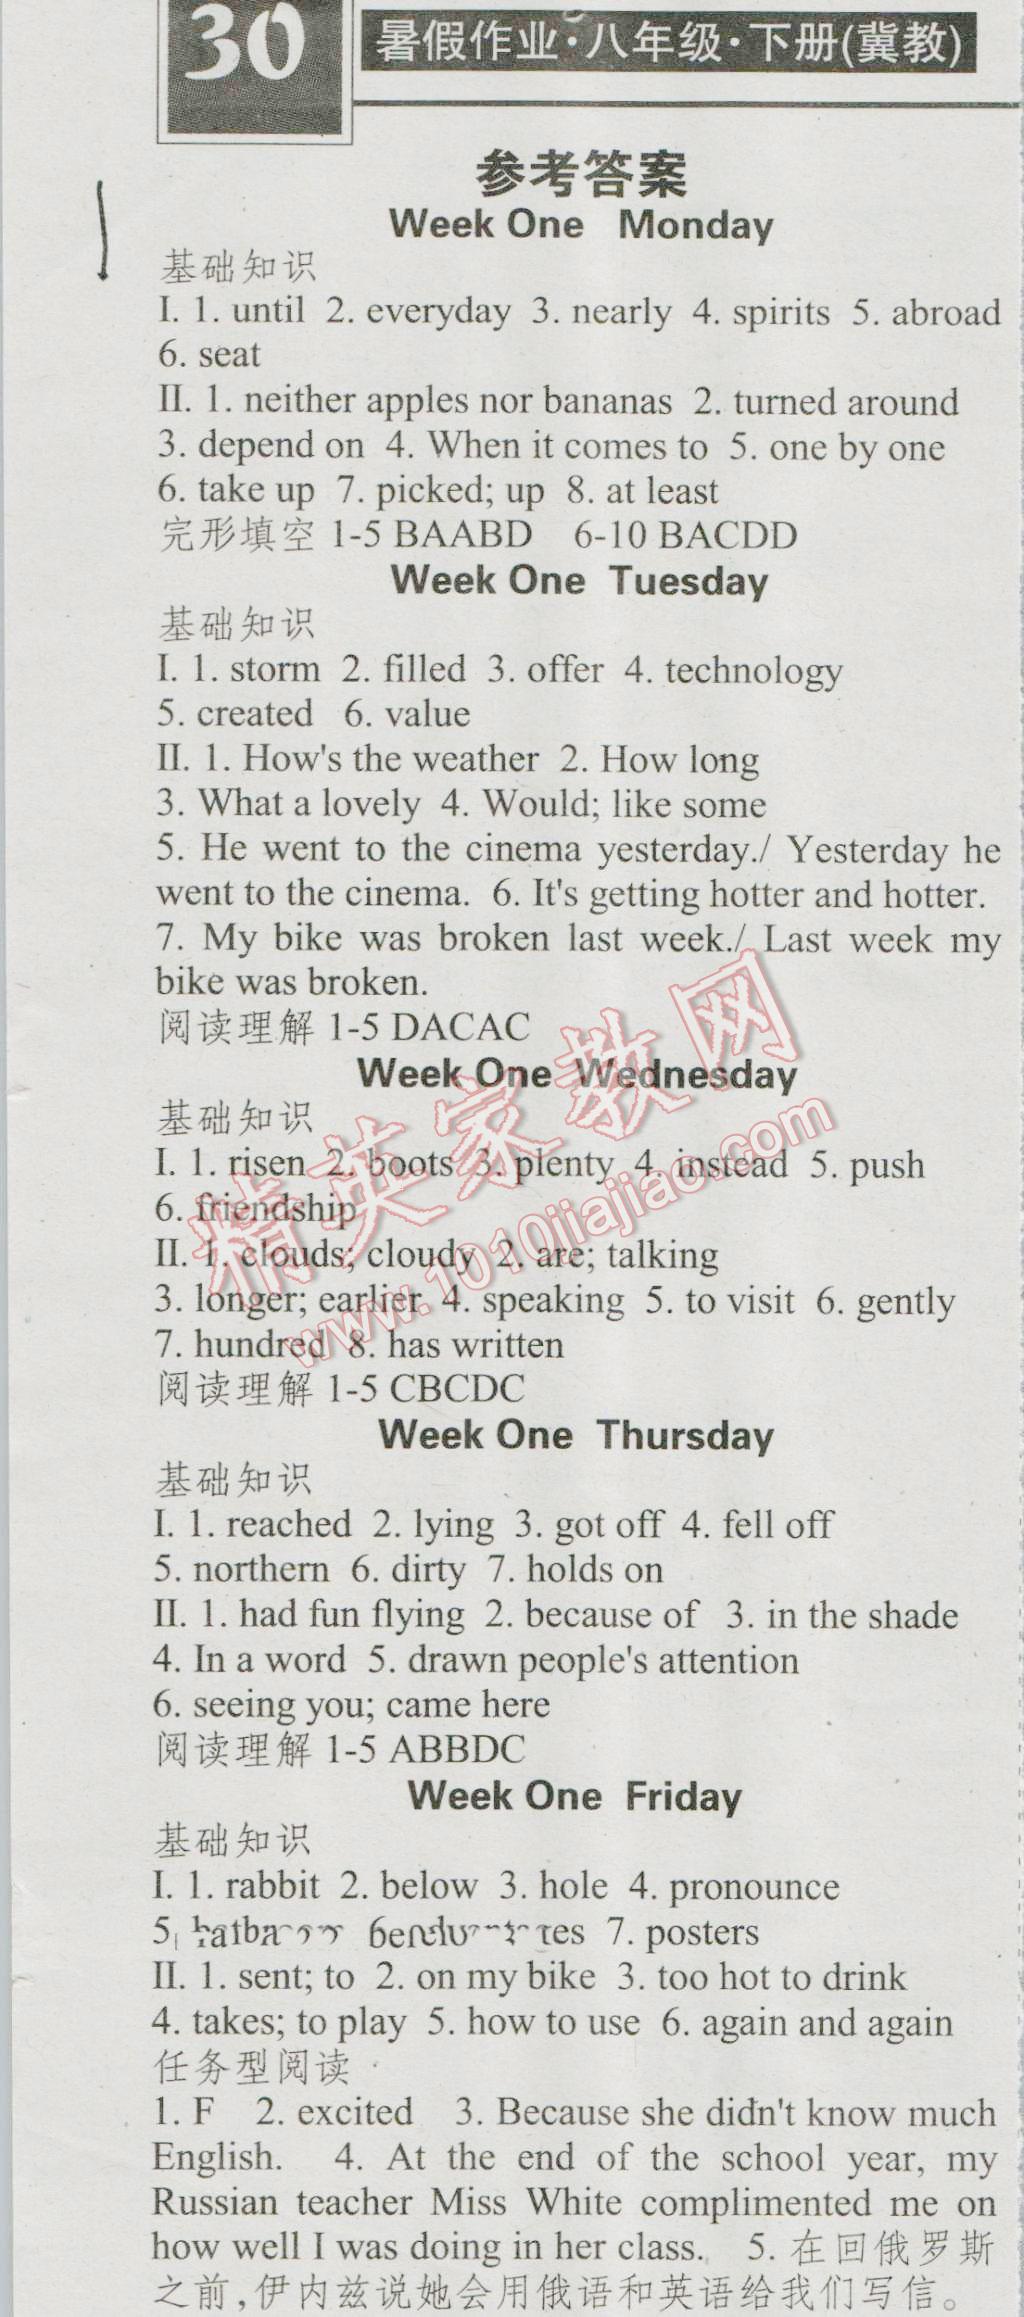 30
暑假作业·八年级·下册(冀教)
参考答案
Week One Monday
基础知识
I. 1. until 2. everyday 3. nearly 4. spirits 5. abroad
6. seat
II. 1. neither apples nor bananas 2. turned around
3. depend on 4. When it comes to 5. one by one
6. take up 7. picked; up 8. at least
完形填空 1-5 BAABD 6-10 BACDD
Week One Tuesday
基础知识
I. 1. storm 2. filled 3. offer 4. technology
5. created 6. value
II. 1. How's the weather 2. How long
3. What a lovely 4. Would; like some
5. He went to the cinema yesterday./ Yesterday he
went to the cinema. 6. It's getting hotter and hotter.
7. My bike was broken last week./ Last week my
bike was broken.
阅读理解 1-5 DACAC
Week One Wednesday
基础知识
I. 1. risen 2. boots 3. plenty 4. instead 5. push
6. friendship
II. 1. clouds; cloudy 2. are; talking
3. longer; earlier 4. speaking 5. to visit 6. gently
7. hundred 8. has written
阅读理解 1-5 CBCDC
Week One Thursday
基础知识
I. 1. reached 2. lying 3. got off 4. fell off
5. northern 6. dirty 7. holds on
II. 1. had fun flying 2. because of 3. in the shade
4. In a word 5. drawn people's attention
6. seeing you; came here
阅读理解 1-5 ABBDC
Week One Friday
基础知识
I. 1. rabbit 2. below 3. hole 4. pronounce
5. 7. posters
II. 1. sent; to 2. on my bike 3. too hot to drink
4. takes; to play 5. how to use 6. again and again
任务型阅读
1. F 2. excited 3. Because she didn't know much
English. 4. At the end of the school year, my
Russian teacher Miss White complimented me on
how well I was doing in her class. 5. 在回俄罗斯
之前,伊内兹说她会用俄语和英语给我们写信。
精英家教网
www.1010jiajiao.com